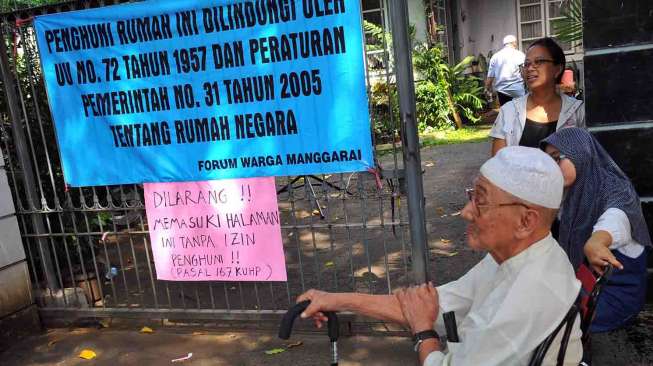 PENGHUNI RUMAH INI DILINDUNGI OLEH
UU NO. 72 TAHUN 1957 DAN PERATURAN
PEMERINTAH NO. 31 TAHUN 2005
TENTANG RUMAH NEGARA
FORUM WARGA MANGGARAI
DILARANG !!
MEMASUKI HALAMAN
INI TANPA IZIN
PENGHUNI !!
(PASAL 167 KUHP)